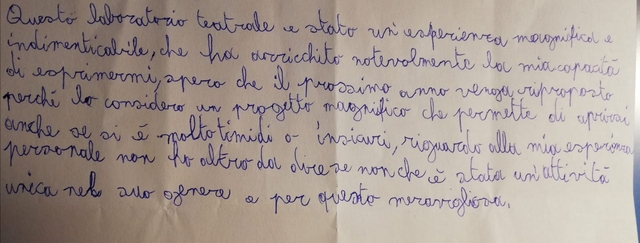 Questo laboratorio teatrale e stato un'esperienza magnifica e
indimenticabile, che ha arricchito notevolmente la mia capacità
di esprimermi, spero che il prossimo anno venga riproposto
perché lo considero un progetto magnifico che permette di aprirsi
anche se si é molto timidi o insicuri, riguardo alla mia esperienza
personale non ho altro da dire se non che é stata un'attività
unica nel suo genere e per questo meravigliosa.